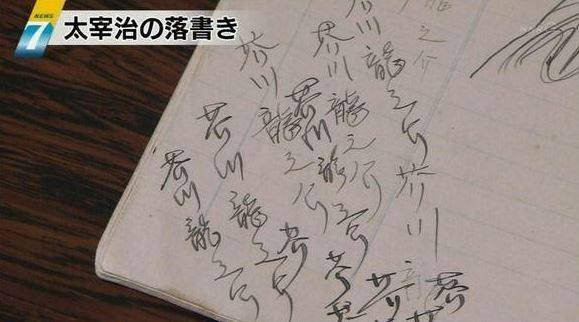 NEWS
7
太宰治の落書き
龍之介
芥川龍之介
芥川
芥川龍之介
芥川龍之介
芥川龍之介
芥川龍之介
芥川龍之介
芥
芥
芥川
龍
芥川